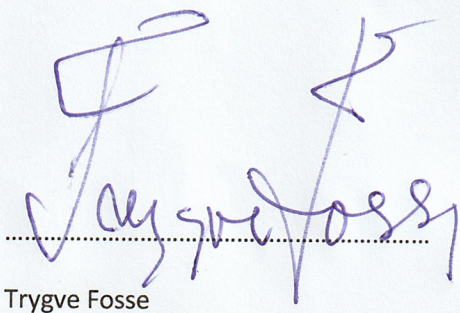 Trygve Fosse
Trygve Fosse